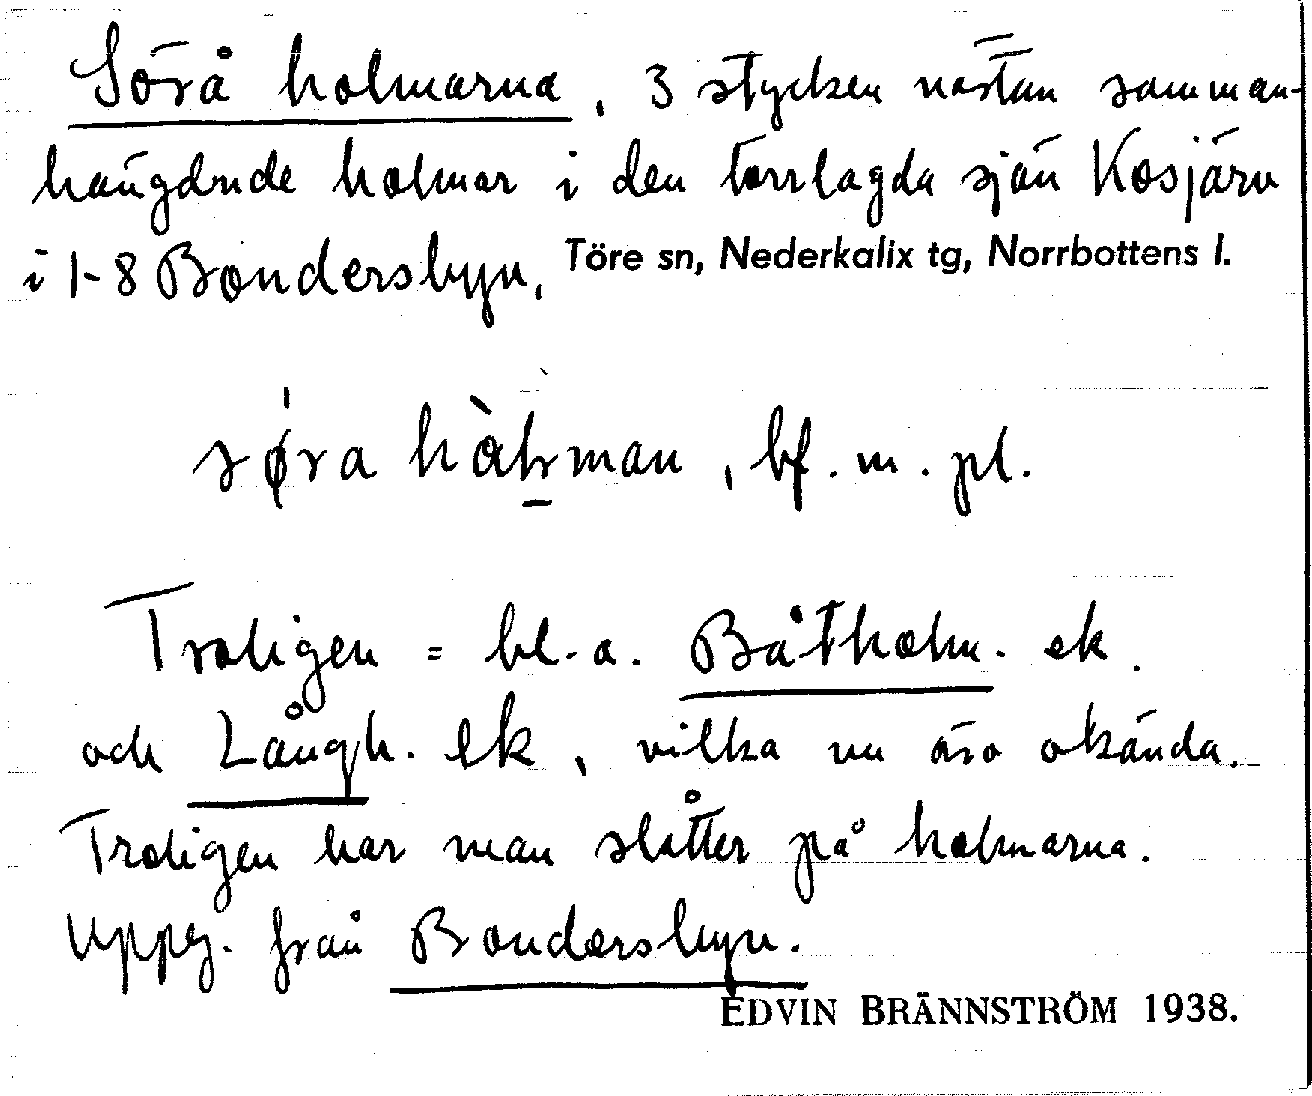 Sörå holmarna, 3 stycken nästan samman-
hängande holmar i den torrlagda sjön Kosjärv
i 1-8 Bondersbyn, Töre sn, Nederkalix tg, Norrbottens l.
søra hàlman, bf. m. pl.
Troligen = bl. a. Båtholm. ek.
och Långh. ek, vilka nu äro okända.
Troligen har man slåtter på holmarna.
Uppg. från Bondersbyn.
EDVIN BRÄNNSTRÖM 1938.